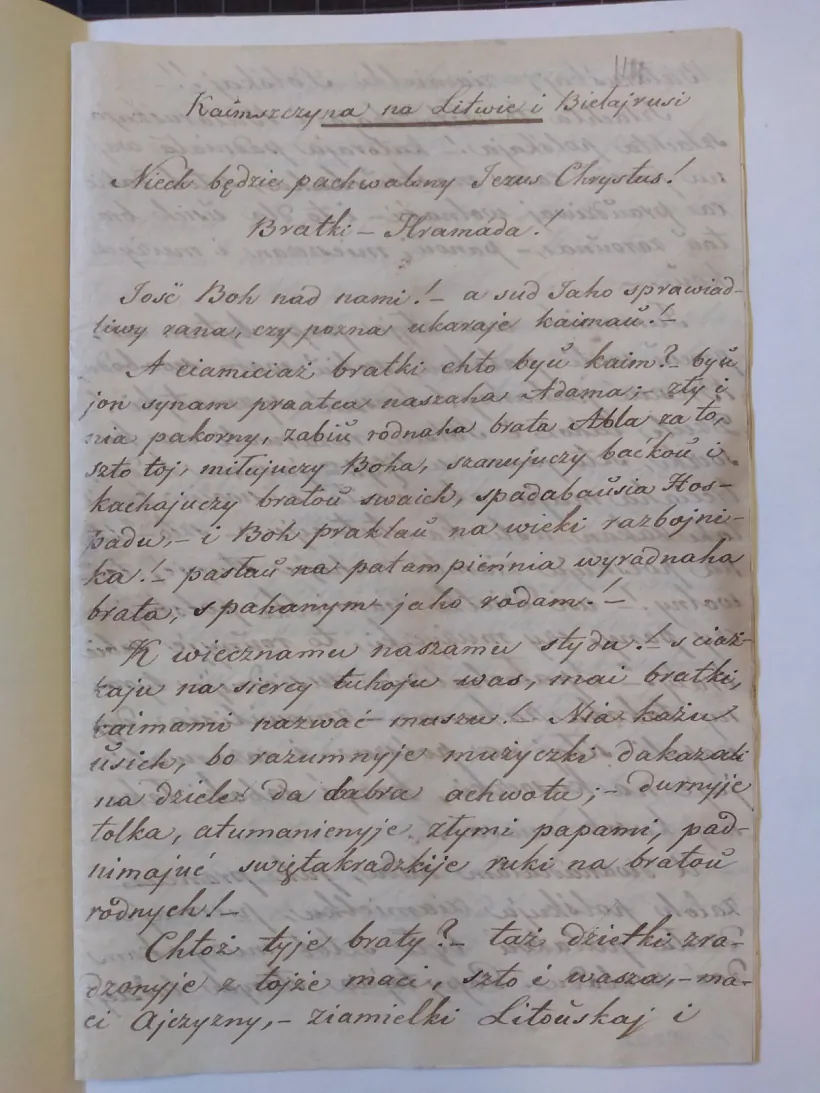 Kaimszczyna na Litwie i Biełajrusi
Niech będzie pachwalony Jezus Chrystus!
Bratki – Hramada!
Jość Boh nad nami! – a sud Jaho sprawiad-
liwy rana, czy pozna ukaraje kaimaŭ! –
A ciamiciaż bratki chto byŭ kaim? – byŭ
jon synam praatca naszaha Adama; – zły i
nia pakorny, zabiŭ rodnaha brata Abla za to,
szto toj, miłujuczy Boha, szanujuczy baćkoŭ i
kachajuczy bratoŭ swaich, spadabaŭsia Hos-
padu, – i Boh praklaŭ na wieki razbojni-
ka! – pasłaŭ na patampieńnia wyradnaha
brata, s pahanym jaho rodam! –
K wiecznamu naszamu stydu! – s ciaż-
kaju na siercy tuhoju was, mai bratki,
kaimami nazwać muszu! – Nia każu
ŭsich, bo razumnyje mużyczki dakazali
na dziele da dabra achwotu; – durnyje
tolka, atumanienyje złymi papami, pad-
nimajuć swiętakradzkije ruki na bratoŭ
rodnych! –
Chtoż tyje braty? – taż dzietki zra-
dzonyje z tojże maci, szto i wasza, – ma-
ci Ajczyzny, – ziamielki Litoŭskaj i